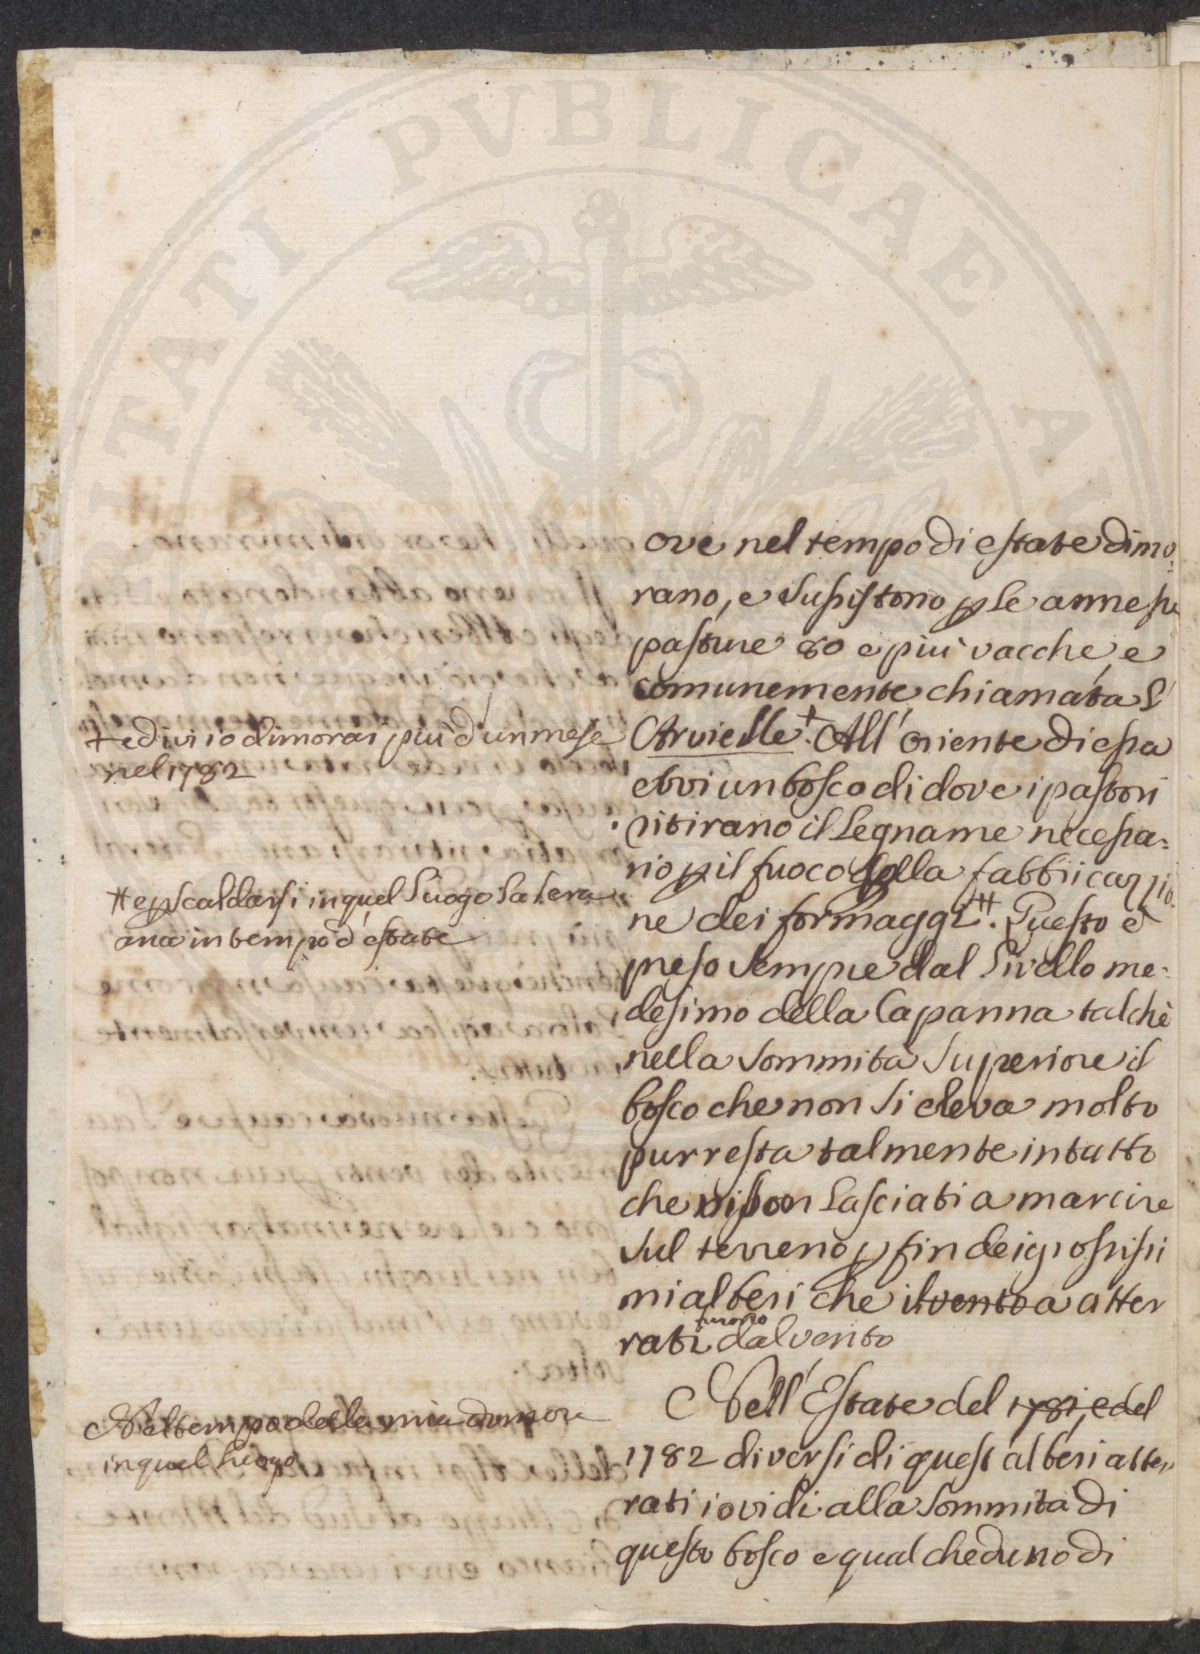 ove nel tempo di estate dimo-
rano, e susistono p le annesse
pasture 80 e piu vacche, e
comunemente chiamata l'
Arvielle + . All' oriente di essa
etvi un bosco di dove i pastori
ritirano il legname necessa-
rio p il fuoco della fabbricazio-
ne dei formaggi ++ . Questo è
preso sempre dal livello me-
desimo della Capanna talchè
nella sommità superiore il
bosco che non si eleva molto
pur resta talmente intatto
che vi son lasciati a marcire
sul terreno p fin dei grossissi
mi alberi che il vento a atter
rati furono dal vento
Nell' Estate del 1781, e del
1782 diversi di quest alberi atter
rati io vidi alla sommità di
questo bosco e qualcheduno di
+ ed ivi io dimorai più d'un mese
nel 1782
++ e p scaldarsi in quel luogo la sera
anco in tempo d'estate
Nel tempo della mia dimora
in quel luogo
PVBLICAE